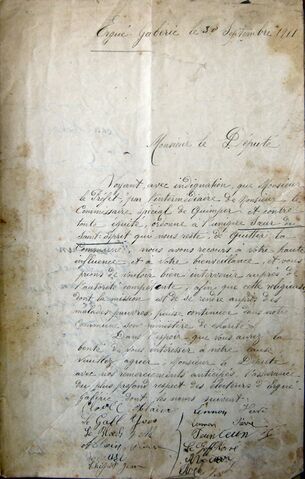 Ergué Gabéric le 30 Septembre 1911
Monsieur le Député
Voyant avec indignation que Monsieur
le Préfet par l'intermédiaire de Monsieur le
Commissaire spécial de Quimper et contre
toute équité, ordonne à l'unique Sœur du
Saint Esprit qui nous reste de Quitter la
Commune, nous avons recours à votre haute
influence et à votre bienveillance et vous
prions de vouloir bien intervenir auprès de
l'autorité compétente, afin que cette religieuse
dont la mission est de se rendre auprès des
malades pauvres puisse continuer dans notre
Commune son ministère de charité.
Dans l'espoir que vous aurez la
bonté de vous intéresser à notre
veuillez agréer Monsieur le Député
avec nos remerciements anticipés l'assurance
du plus profond respect des électeurs d'Ergué
Gabéric dont les noms suivent
Alain Lennon
Le Gall Yves Lennon
Le Jean Louis
Jean